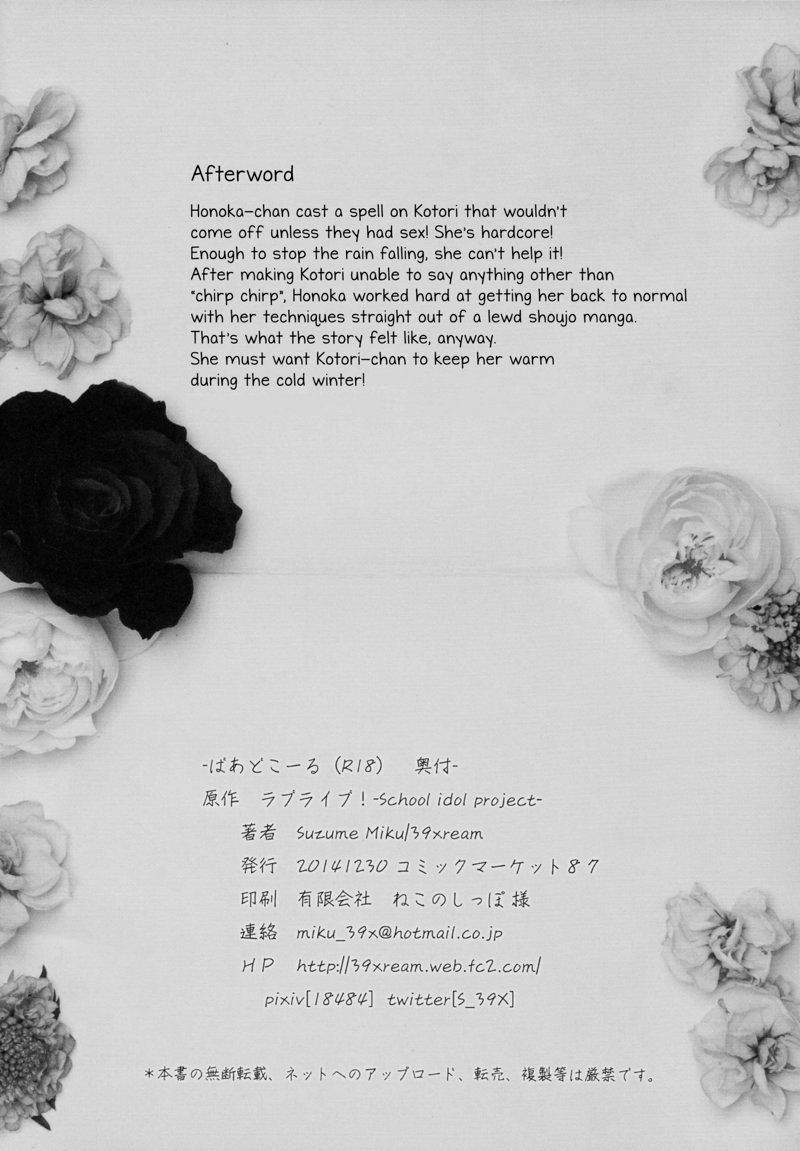 Afterword
Honoka-chan cast a spell on Kotori that wouldn't
come off unless they had sex! She's hardcore!
Enough to stop the rain falling, she can't help it!
After making Kotori unable to say anything other than
"chirp chirp", Honoka worked hard at getting her back to normal
with her techniques straight out of a lewd shoujo manga.
That's what the story felt like, anyway.
She must want Kotori-chan to keep her warm
during the cold winter!
-ばあどこーる（R18） 奥付-
原作 ラブライブ！-School idol project-
著者 Suzume Miku/39xream
発行 20141230 コミックマーケット８７
印刷 有限会社 ねこのしっぽ 様
連絡 miku_39x@hotmail.co.jp
ＨＰ http://39xream.web.fc2.com/
pixiv[18484] twitter[S_39X]
＊本書の無断転載、ネットへのアップロード、転売、複製等は厳禁です。